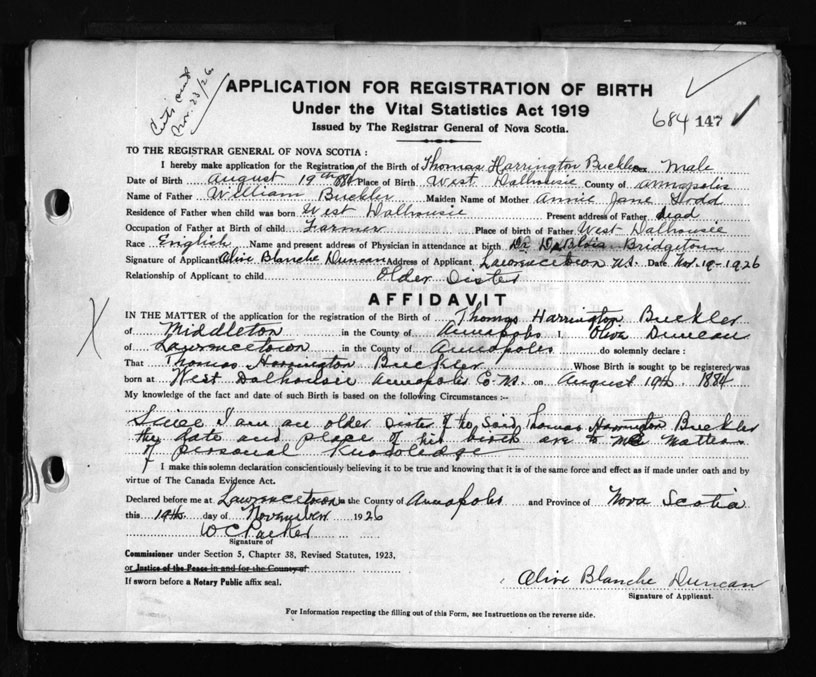 Certs cont
Nov. 23/26
APPLICATION FOR REGISTRATION OF BIRTH
Under the Vital Statistics Act 1919
Issued by The Registrar General of Nova Scotia.
684 147
TO THE REGISTRAR GENERAL OF NOVA SCOTIA :
I hereby make application for the Registration of the Birth of Thomas Harrington Buckler Male
Date of Birth August 19th 1884 Place of Birth West Dalhousie County of Annapolis
Name of Father William Buckler Maiden Name of Mother Annie Jane Hodd
Residence of Father when child was born West Dalhousie Present address of Father dead
Occupation of Father at Birth of child Farmer Place of birth of Father West Dalhousie
Race English Name and present address of Physician in attendance at birth Dr DeBlois Bridgetown
Signature of Applicant Olive Blanche Duncan Address of Applicant Lawrencetown N.S. Date Nov. 19-1926
Relationship of Applicant to child Older Sister
AFFIDAVIT
IN THE MATTER of the application for the registration of the Birth of Thomas Harrington Buckler
of Middleton in the County of Annapolis I, Olive Duncan
of Lawrencetown in the County of Annapolis do solemnly declare :
That Thomas Harrington Buckler Whose Birth is sought to be registered was
born at West Dalhousie Annapolis Co N.S. on August 19th 1884
My knowledge of the fact and date of such Birth is based on the following Circumstances :—
Since I am an older sister of the said Thomas Harrington Buckler
the date and place of his birth are to me matters
of personal knowledge
I make this solemn declaration conscientiously believing it to be true and knowing that it is of the same force and effect as if made under oath and by
virtue of The Canada Evidence Act.
Declared before me at Lawrencetown in the County of Annapolis and Province of Nova Scotia
this 19th day of November 1926
W C Parker
Signature of
Commissioner under Section 5, Chapter 38, Revised Statutes, 1923,
or Justice of the Peace in and for the County of
If sworn before a Notary Public affix seal.
Olive Blanche Duncan
Signature of Applicant.
For Information respecting the filling out of this Form, see Instructions on the reverse side.